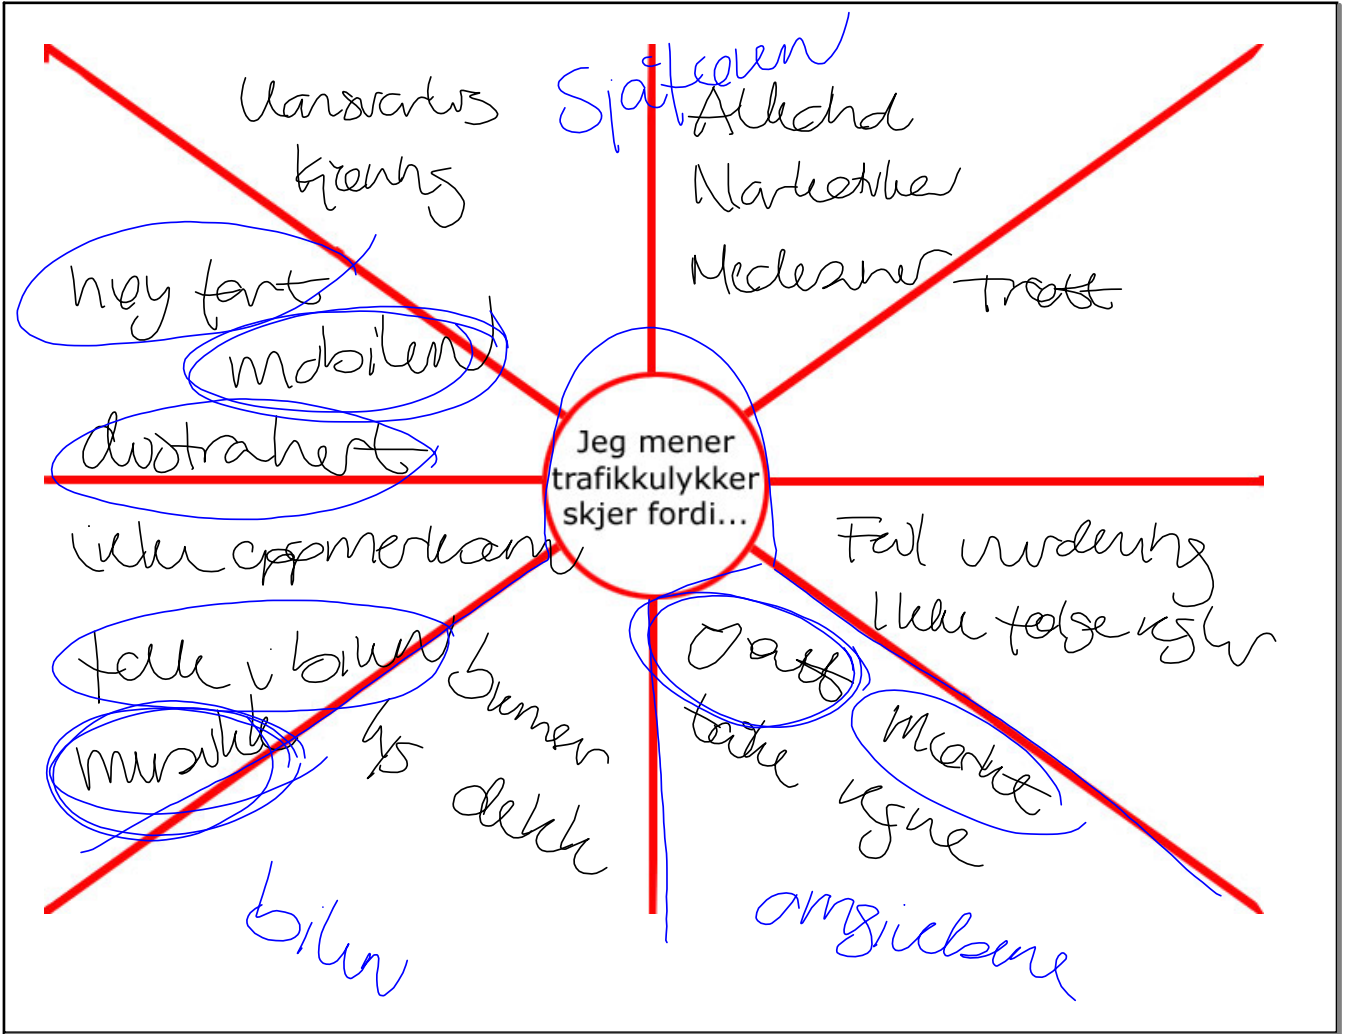 Sjåføren
Uansvarlig
kjøring
Alkohol
Narkotika
Medesiner
Trøtt
høy fart
mobilen
distrahert
Jeg mener
trafikkulykker
skjer fordi...
ikke oppmerksom
Feil vurdering
Ikke følge regler
folk i bilen
musikk
lys
bremser
dekk
Vått
tåke
regne
Mørket
bilen
omgivelsene